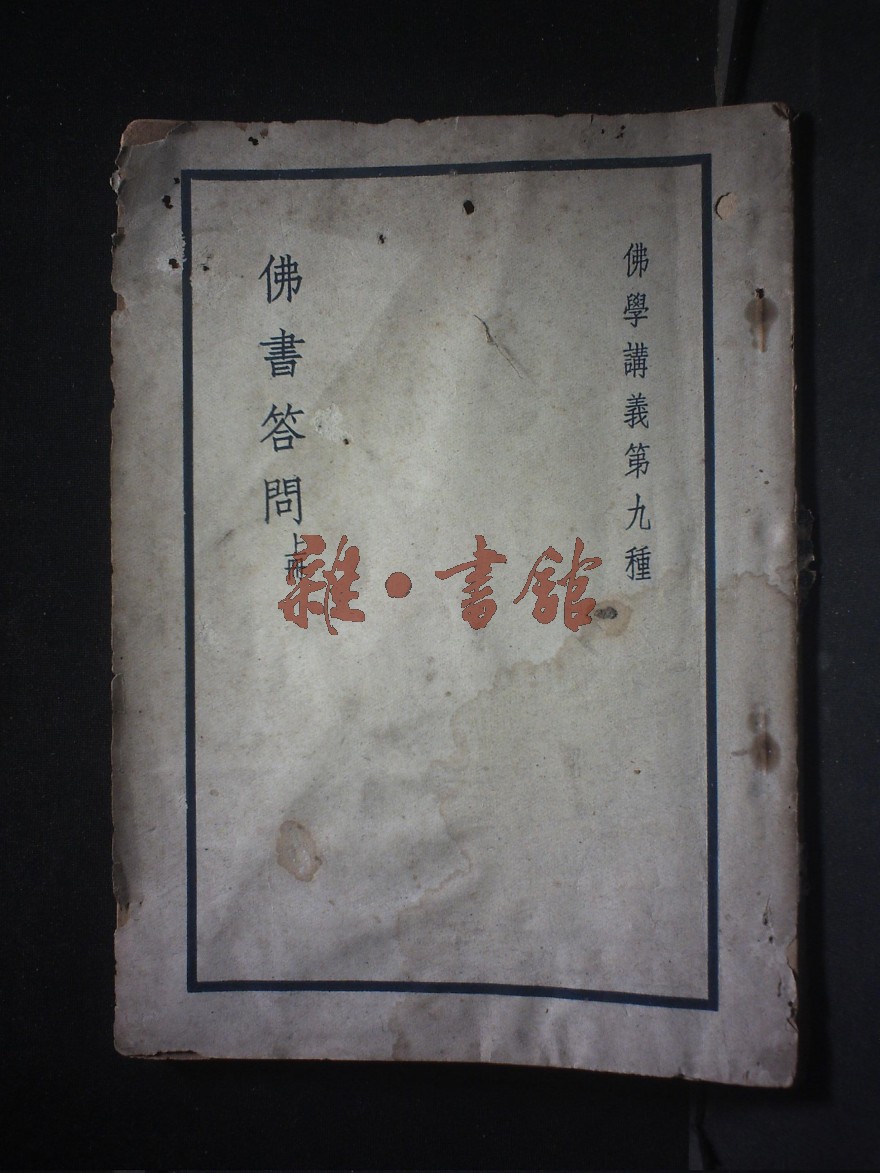 佛學講義第九種
佛書答問上冊
雜·書館